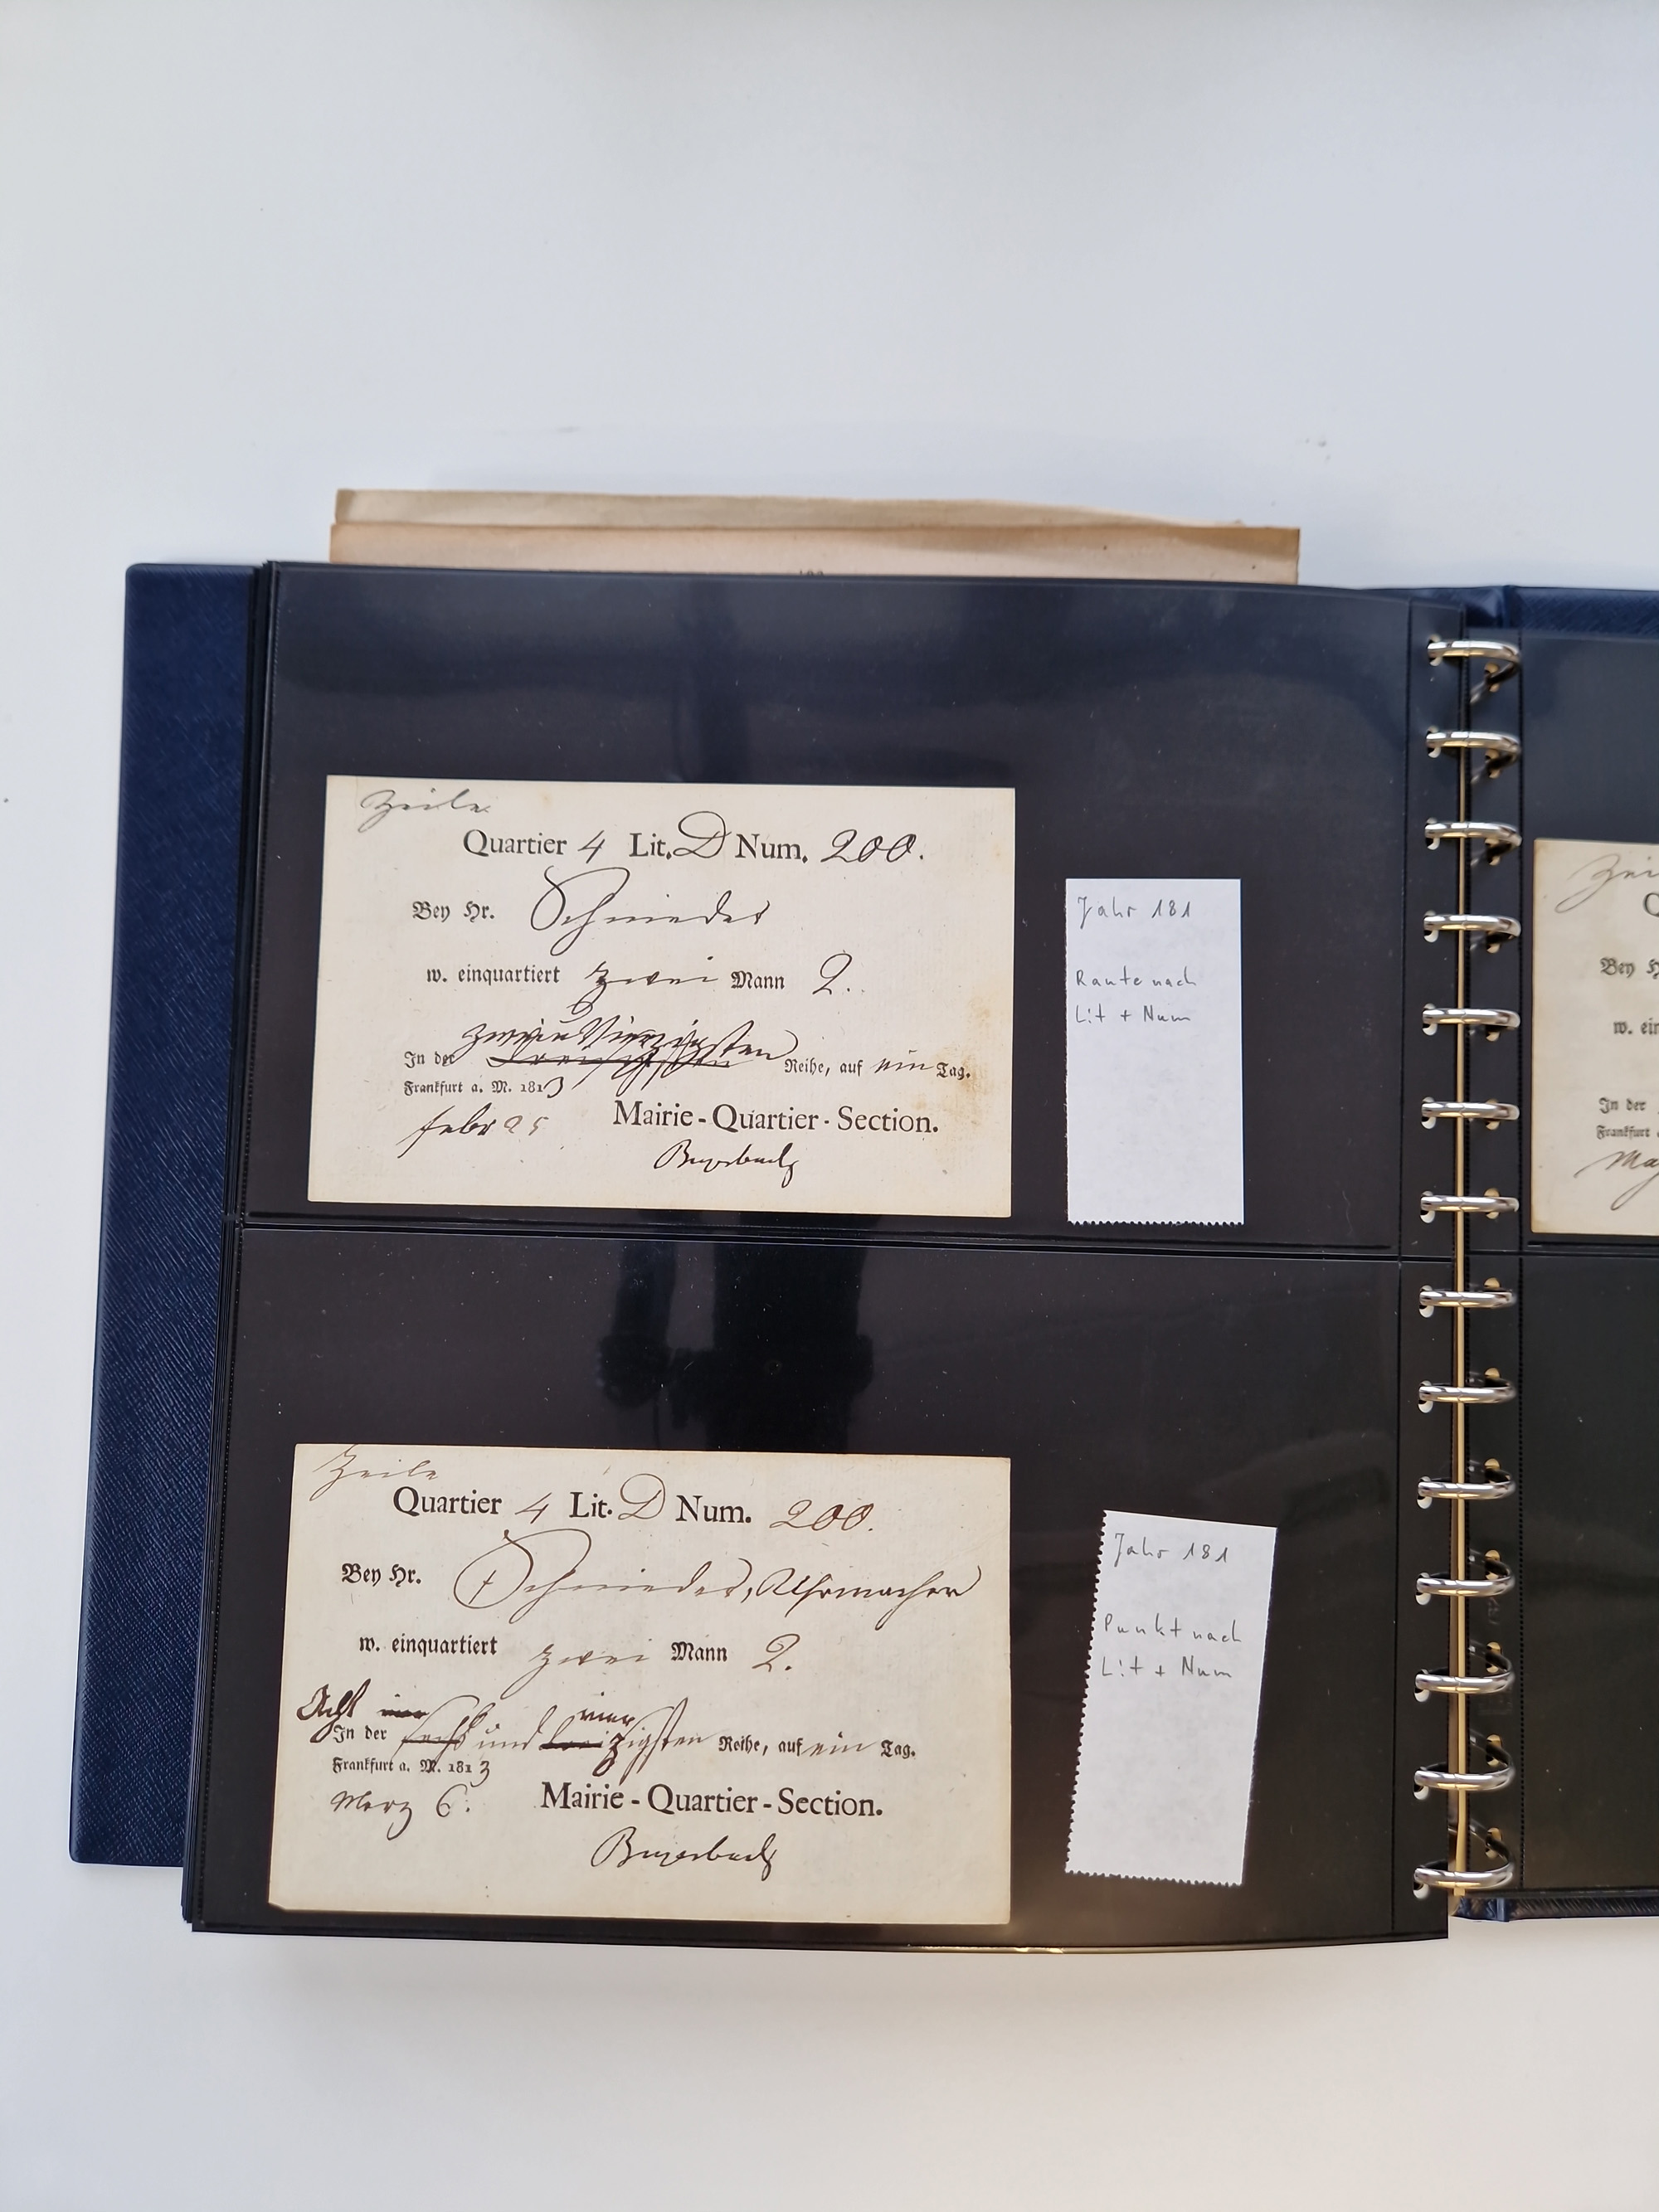 Zeile
Quartier 4 Lit. D Num. 200.
Bey Hr. Schmieder
w. einquartiert zwei Mann 2.
In der zwei u Vierzigsten Reihe, auf ein Tag.
Frankfurt a. M. 1813
febr 25 Mairie-Quartier-Section.
Jahr 181
Raute nach
Lit + Num
Zeile
Quartier 4 Lit. D Num. 200.
Bey Hr. Schmieder, Uhrmacher
w. einquartiert zwei Mann 2.
Acht vier vier
In der sechs und dreizigsten Reihe, auf ein Tag.
Frankfurt a. M. 1813
Merz 6. Mairie-Quartier-Section.
Jahr 181
Punkt nach
Lit + Num
Zei
Q
Bey H
w. ein
In der
Frankfurt
May